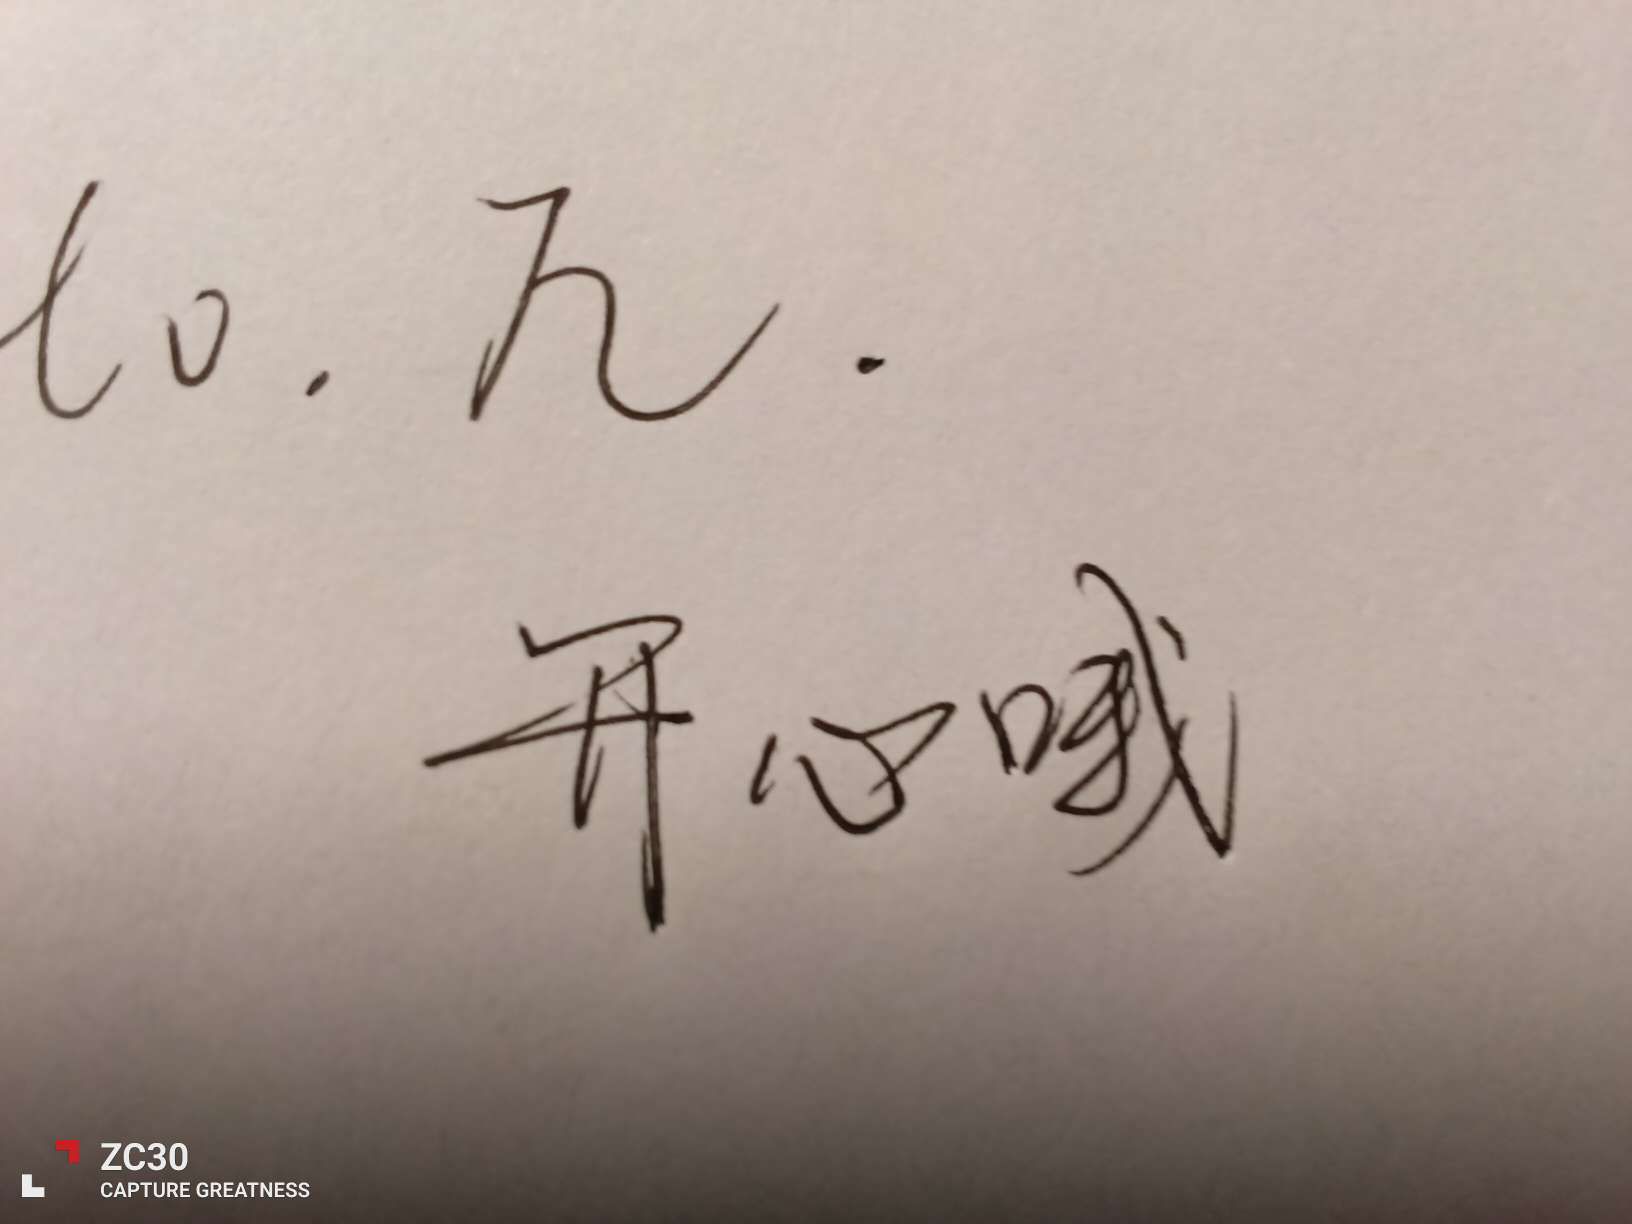 to. h.
开心哦
ZC30
CAPTURE GREATNESS